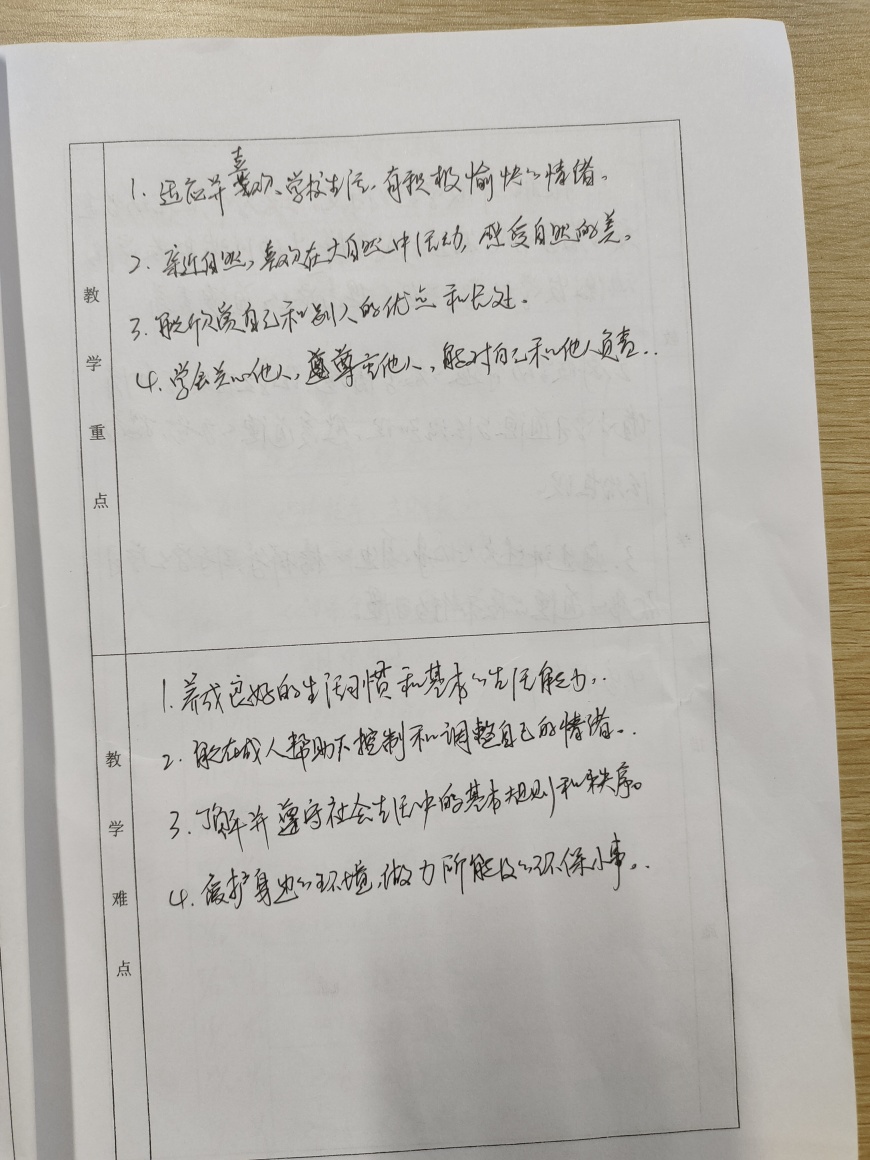 教学重点
1. 适应并喜欢学校生活,有积极愉快的情绪。
2. 亲近自然,喜欢在大自然中活动,感受自然的美。
3. 能欣赏自己和别人的优点和长处。
4. 学会关心他人,尊重他人,能对自己和他人负责。
教学难点
1. 养成良好的生活习惯和基本的生活能力。
2. 能在成人帮助下控制和调整自己的情绪。
3. 了解并遵守社会生活中的基本规则和秩序。
4. 爱护身边的环境,做力所能及的环保小事。